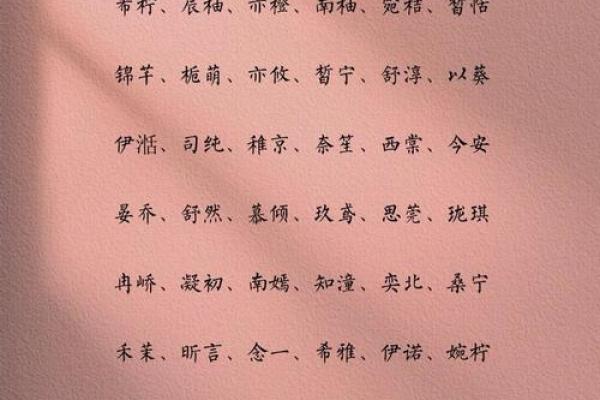 希柠、辰柚、亦橙、南柚、宛桔、皙恬
锦芊、栀萌、亦攸、皙宁、舒淳、以葵
伊湉、司纯、稚京、奈笙、西棠、今安
晏乔、舒然、慕倾、玖鸢、思莞、珑琪
冉峤、凝初、南嫣、知潼、奕北、桑宁
禾茉、昕言、念一、希雅、伊诺、婉柠